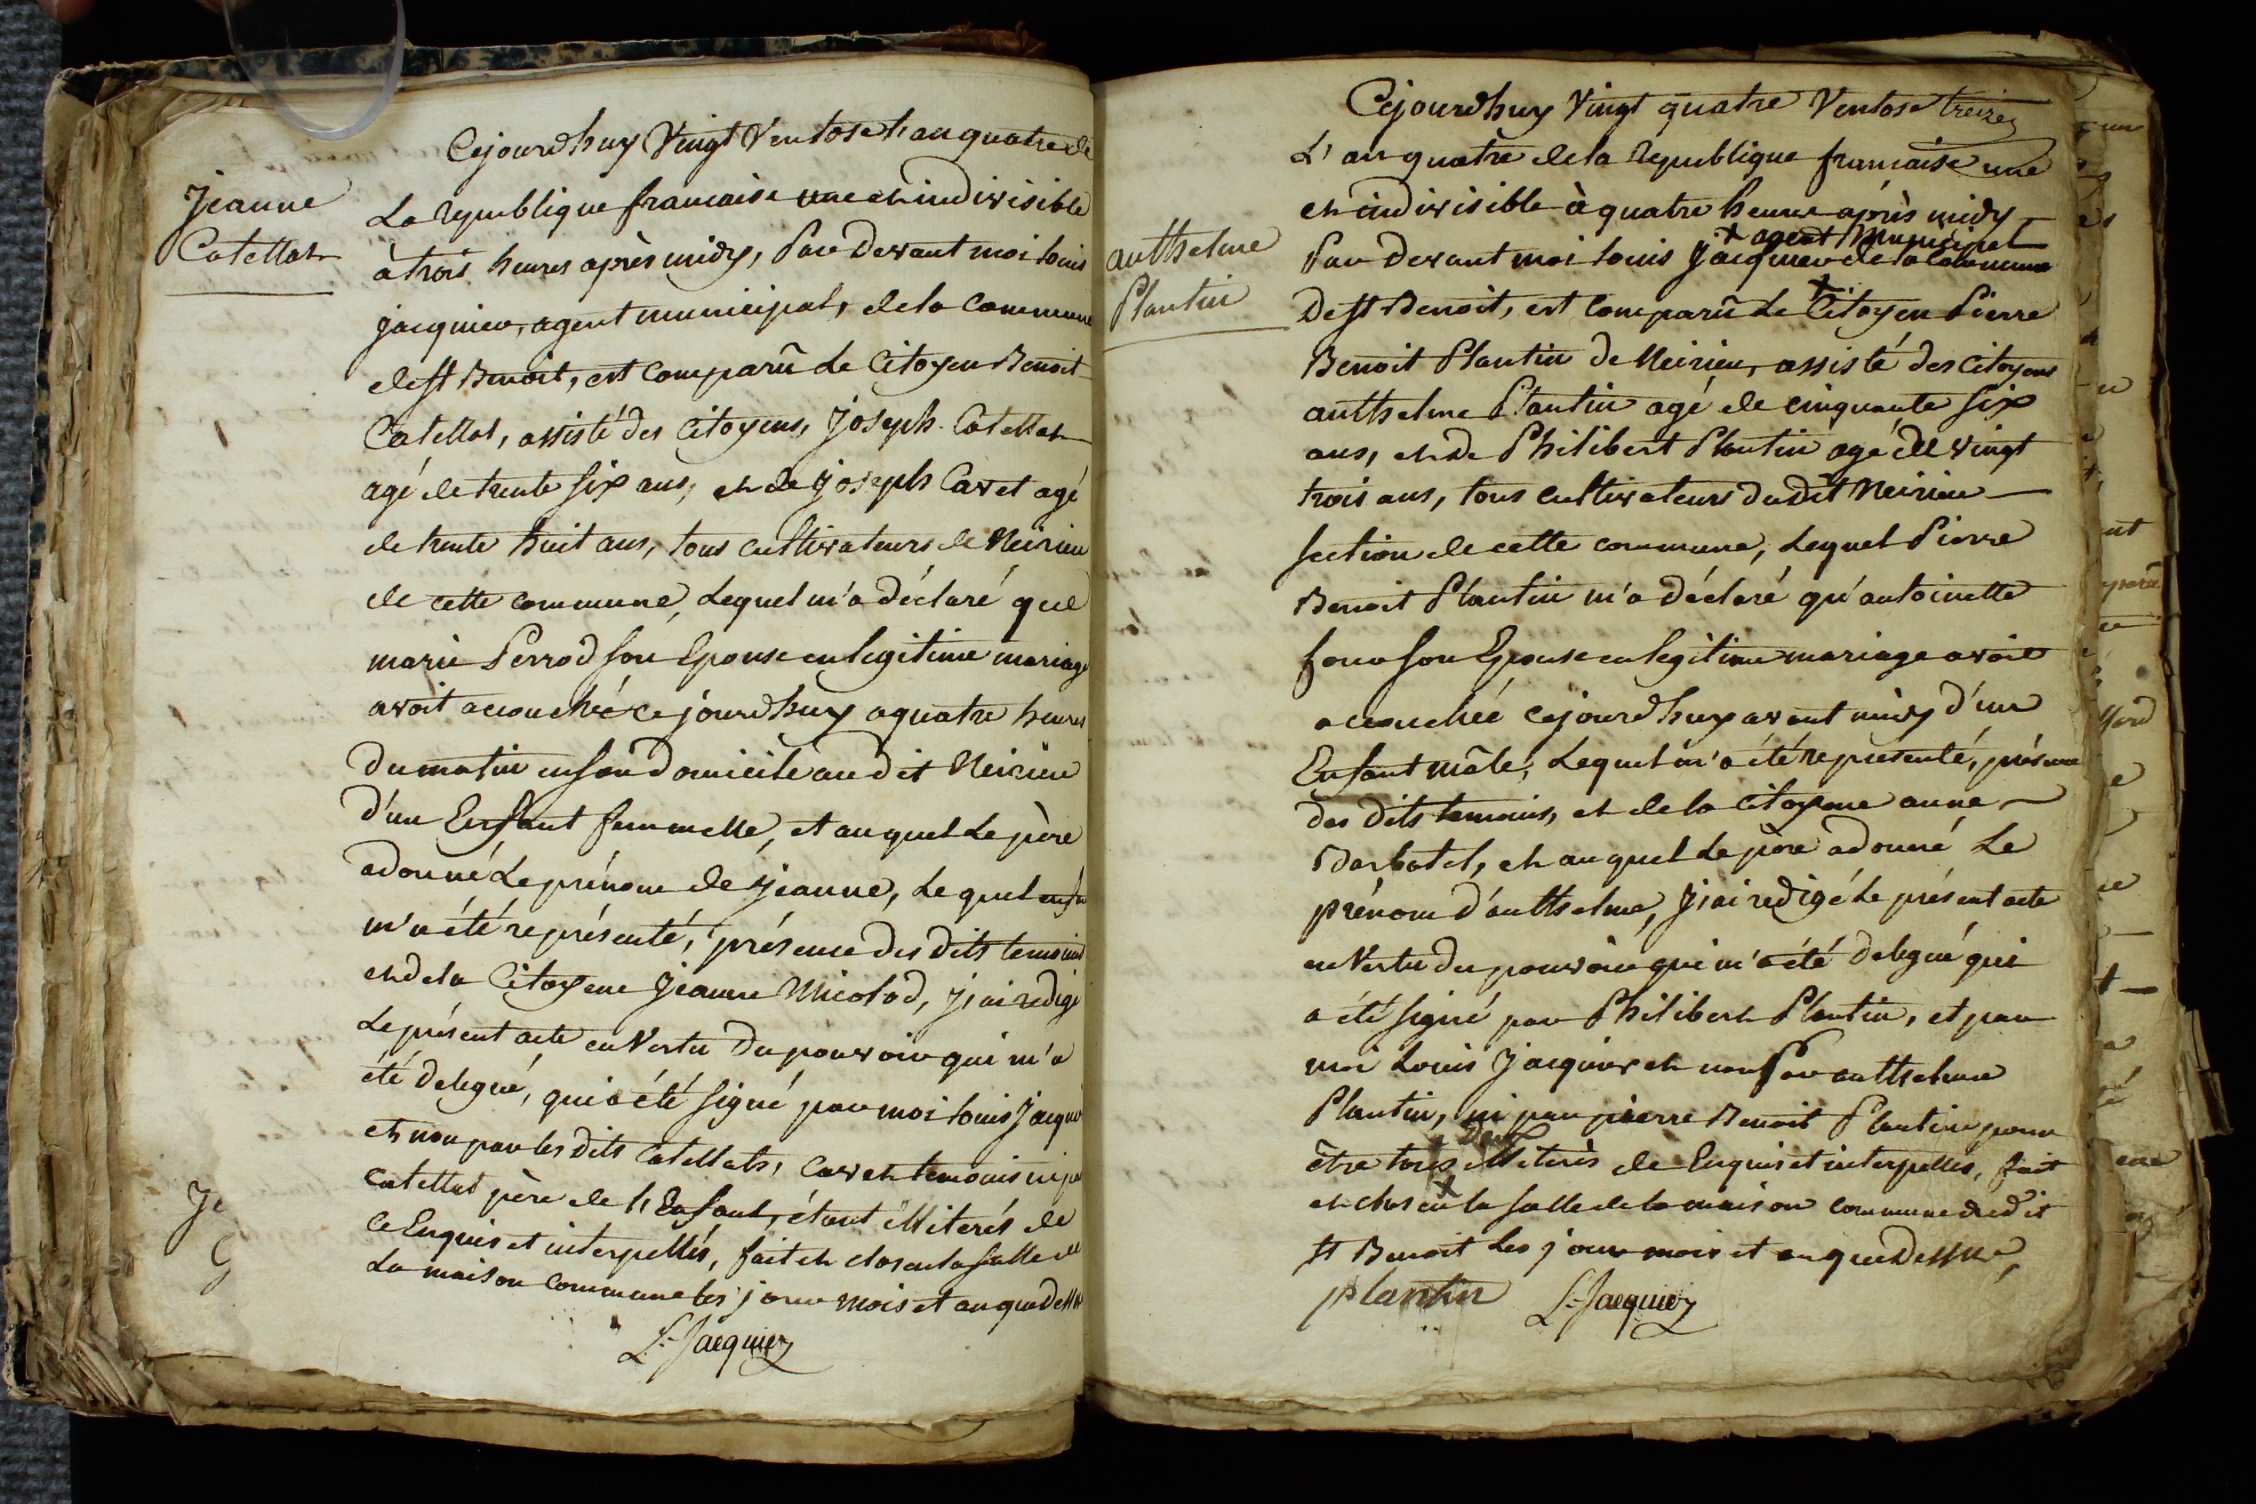 Jeanne
Catellat
Cejourdhuy Vingt Ventose l'an quatre de
La republique francaise une et indivisible
à trois heures après midy, Par Devant moi Louis
jacquier, agent municipal, de la Commune
de st Benoit, est comparu Le Citoyen Benoit
Catellat, assisté des Citoyens, Joseph Catellat
agé de trente six ans, et de joseph Cavet agé
de trente huit ans, tous cultivateurs de Neirieu
de cette commune, Lequel m'a déclaré que
marie Perrod son Epouse en legitime mariage
avoit accouchée cejourdhuy a quatre heures
du matin en son Domicile au dit Neirieu
d'un Enfant femmelle, et auquel Le père
a donné Le prénom de jeanne, Le quel
m'a été représenté, présence des dits temoins
et de la Citoyene Jeanne Micolod, j'ai redigé
Le présent acte en Vertu Du pouvoir qui m'a
été delegué, qui a été signé par moi Louis Jacquier
et non par les dits Catellats, Cavet temoins ni par
catellat père de l'Enfant, étant illiterés de
ce Enquis et interpellés, fait et clos en la salle de
La maison commune les jour mois et an que Dessus
L. Jacquier
Je
G
anthelme
Plantin
Cejourdhuy Vingt quatre Ventose treize
L'an quatre de la republique francaise une
et indivisible à quatre heures après midy
x agent Municipal
Par Devant moi Louis Jacquier de la Commune
De st Benoit, est comparu Le Citoyen Pierre
Benoit Plantin de Neirieu, assisté des Citoyens
anthelme Plantin agé de cinquante six
ans, et de Philibert Plantin agé de vingt
trois ans, tous cultivateurs dudit Neirieu
section de cette commune, Lequel Pierre
Benoit Plantin m'a déclaré qu'antoinette
son Epouse en legitime mariage avoit
accouchée cejourdhuy avant midy d'un
Enfant mâle, Lequel m'a été representé, présence
des dits temoins, et de la citoyene anne
Barbotel, et auquel Le père a donné Le
prénom d'anthelme, j'ai redigé Le présent acte
en Vertu du pouvoir qui m'a été delegué qui
a été signé par Philibert Plantin, et par
moi Louis Jacquier et non Par anthelme
Plantin, ni par pierre Benoit Plantin pour
x deux
être tous illiterés de Enquis et interpellés, fait
et clos en la salle de la maison commune dudit
st Benoit Les jour mois et an que Dessus,
plantin L. Jacquier